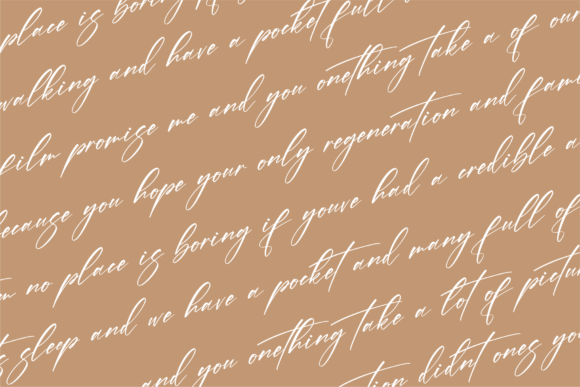 place is boring if
walking and have a pocket full
film promise me and you onething take a of our
because you hope your only regeneration and fam
no place is boring if youve had a credible a
sleep and we have a pocket and many full of
and you onething take a lot of pictu
didnt ones yo